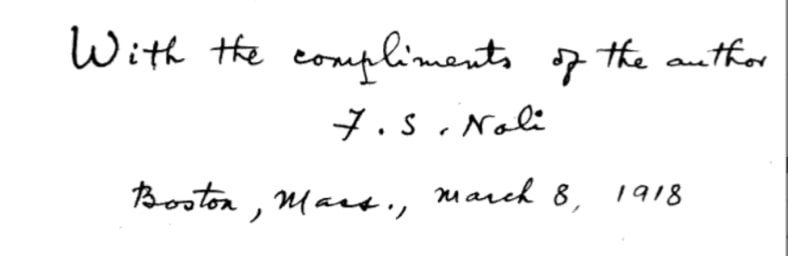 With the compliments of the author
F. S. Noli
Boston, Mass., March 8, 1918